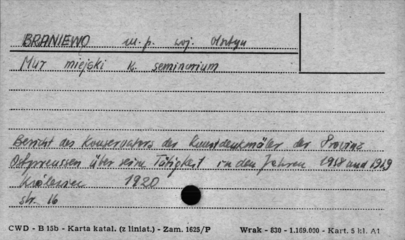 BRANIEWO m.p. woj. Olsztyn
Mur miejski k. seminarium
Bericht des Konservators der Kunstdenkmäler der Provinz
Ostpreussen über seine Tätigkeit in den Jahren 1918 und 1919
Królewiec 1920
str. 16
CWD - B 15b - Karta katal. (z liniat.) - Zam. 1625/P Wrak - 630 - 1.159.000 - Kart. 5 kl. A1